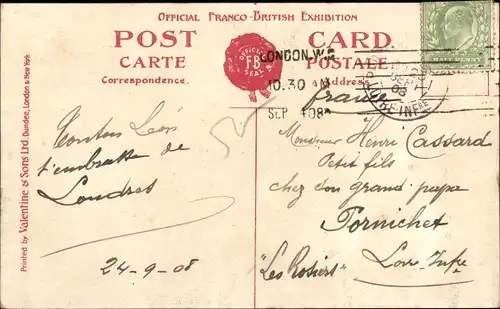 OFFICIAL FRANCO-BRITISH EXHIBITION
POST CARD
CARTE POSTALE
Correspondence.
Address.
OFFICIAL
F B
SEAL
LONDON. W.C
10.30 AM
SEP 08
HALF PENNY
Printed by Valentine & Sons Ltd. Dundee, London & New York.
Tonton Leon
t'embrasse de
Londres
24-9-08
france
Monsieur Henri Cassard
Petit fils
chez son grand papa
Pornichet
"Les Rosiers" Loire Infre